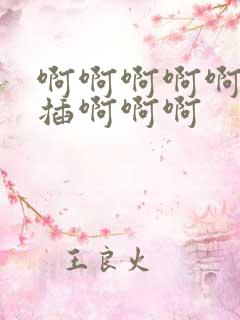 啊啊啊啊啊
插啊啊啊
王良火